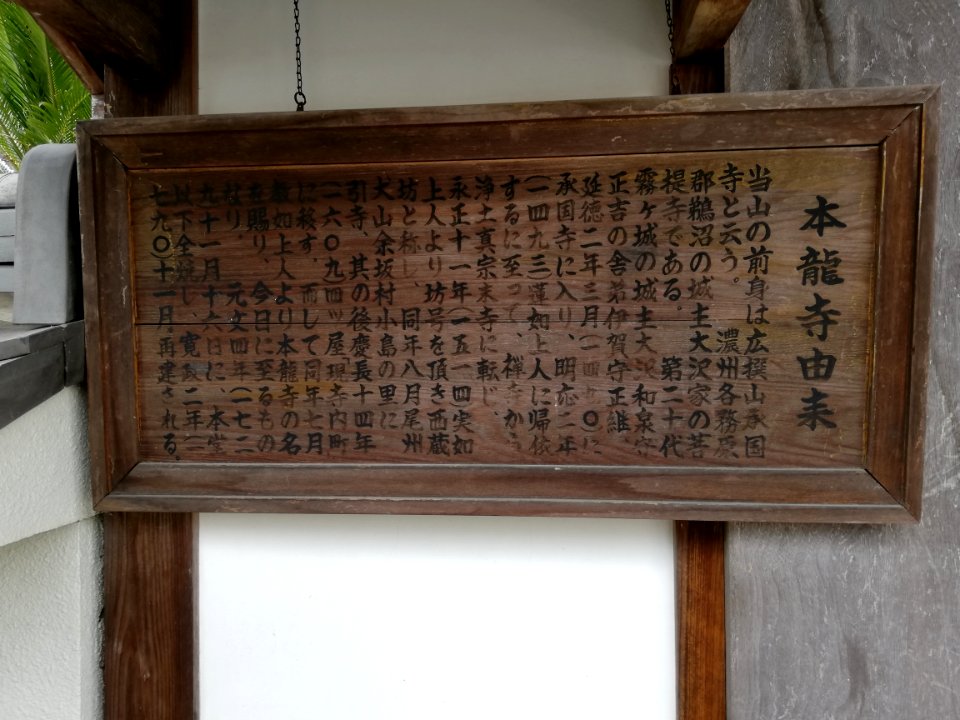 本龍寺由来
当山の前身は広撰山承国
寺と云う。 濃州各務原
郡鵜沼の城主大沢家の菩
提寺である。 第二十代
霧ヶ城の城主大沢和泉守
正吉の舎弟伊賀守正維、
延徳二年三月(一四九〇)に
承国寺に入り、明応二年
(一四九三)蓮如上人に帰依
するに至って、禅寺から
浄土真宗末寺に転じ、
永正十一年(一五一四)実如
上人より坊号を頂き西蔵
坊と称し、同年八月尾州
犬山余坂村小島の里に
引寺、其の後慶長十四年
(一六〇九)四ッ屋「現寺内町
に移す、而して同年七月
教如上人より本龍寺の名
を賜り、今日に至るもの
なり、 元文四年(一七二
九)十一月十六日に、本堂
以下全焼し、寛政二年(一
七九〇)十一月再建される